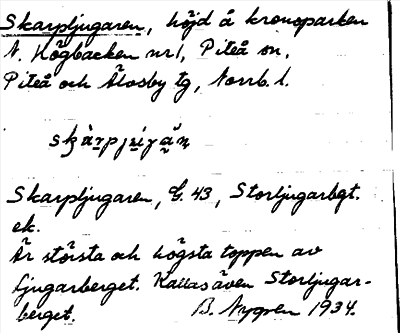 Skarpljugaren, höjd å kronoparken
N. Högbacken nr 1, Piteå sn,
Piteå och Älvsby tg, Norrb. l.
Skarpljugaren, G. 43, Storljugarbgt.
ek.
Är största och högsta toppen av
Ljugarberget. Kallas även Storljugar-
berget. B. Nygren 1934.